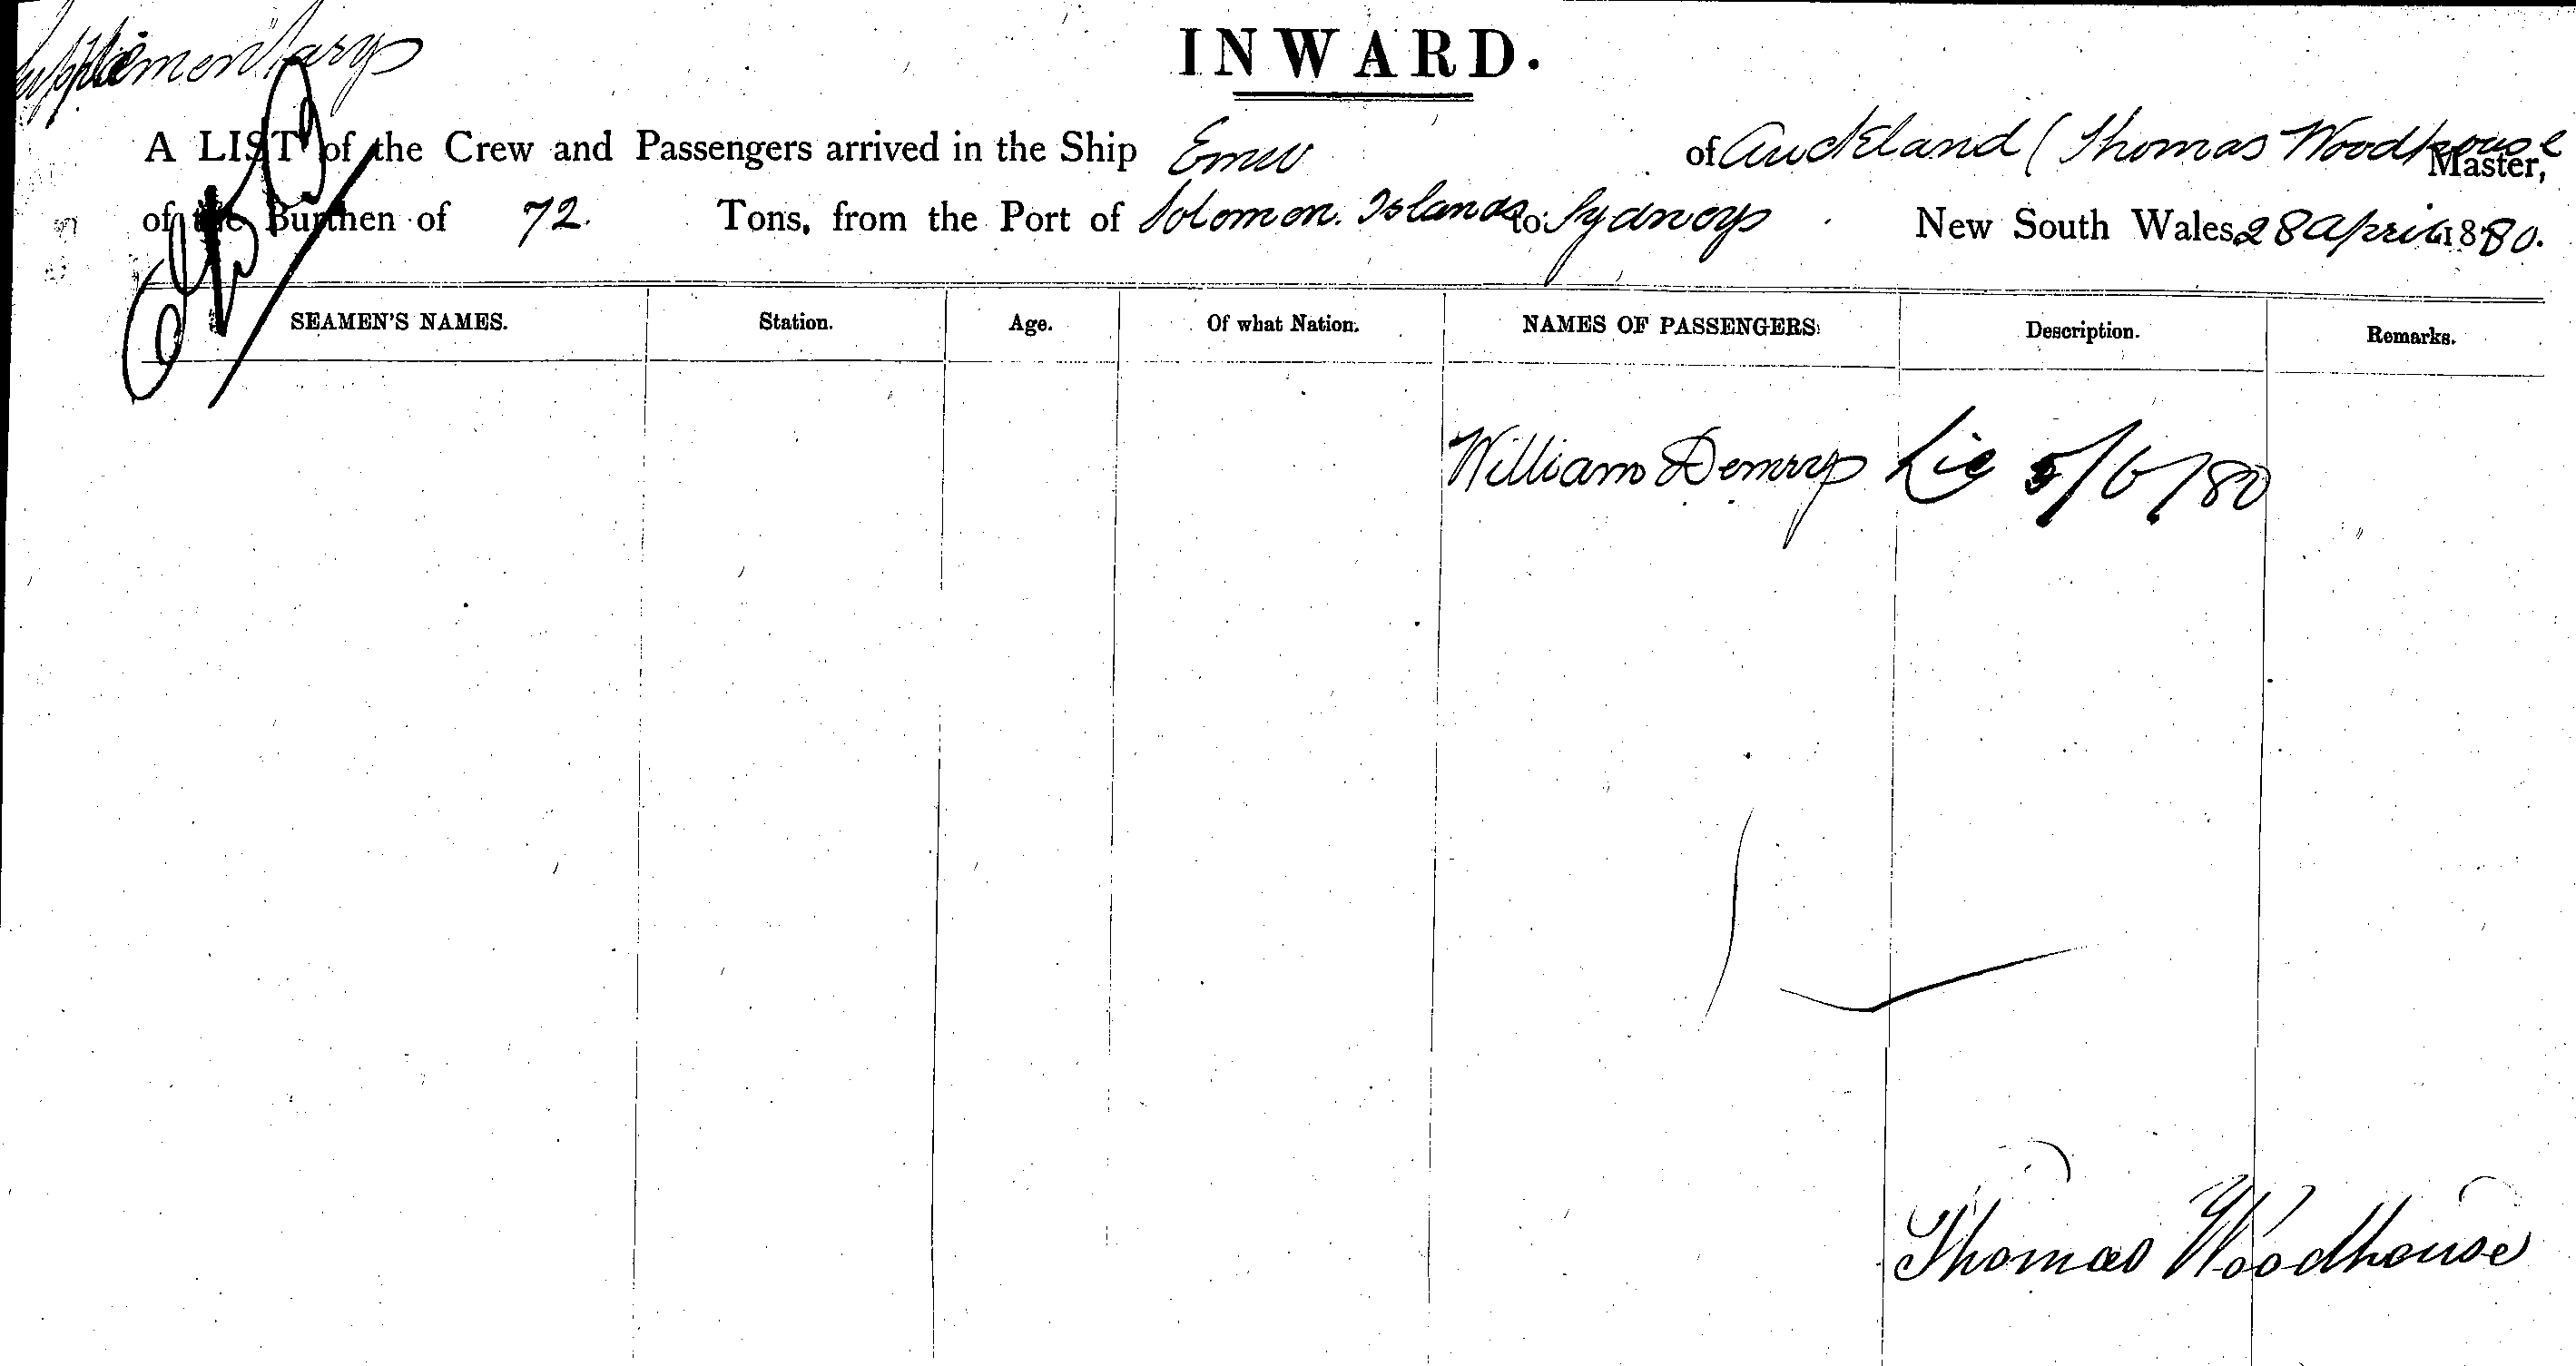 Supplementary
INWARD.
A LIST of the Crew and Passengers arrived in the Ship Emu of Auckland (Thomas Woodhouse Master,
of the Burthen of 72. Tons, from the Port of Solomon Islands to Sydney New South Wales 28 April 1880.
SEAMEN'S NAMES. Station. Age. Of what Nation. NAMES OF PASSENGERS. Description. Remarks.
William 5/6/80
Thomas Woodhouse